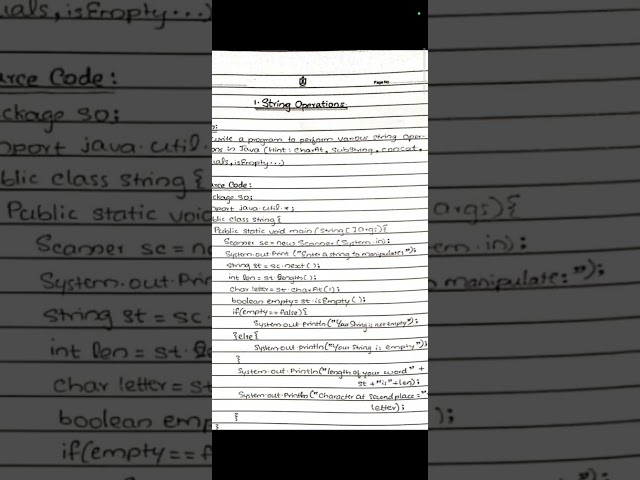 Page No:
1. String Operations.
o:
write a program to perform various string Oper-
ons in Java (hint: charAt, substring, concat,
uals, isEmpty...)
urce Code:
ckage so;
nport java.util.*;
blic class string {
Public static void main(string[]args){
Scanner sc = new Scanner(System.in);
System.out.Print("Enter a string to manipulate:");
string st = sc.next();
int len = st.length();
char letter = st.charAt(1);
boolean empty = st.isEmpty();
if(empty == false){
System.out.println("Your String is not empty");
}else{
System.out.println("Your String is empty");
}
System.out.Println("length of your word" +
st + "is" + len);
System.out.Println("character at second place ="
letter);
}
}